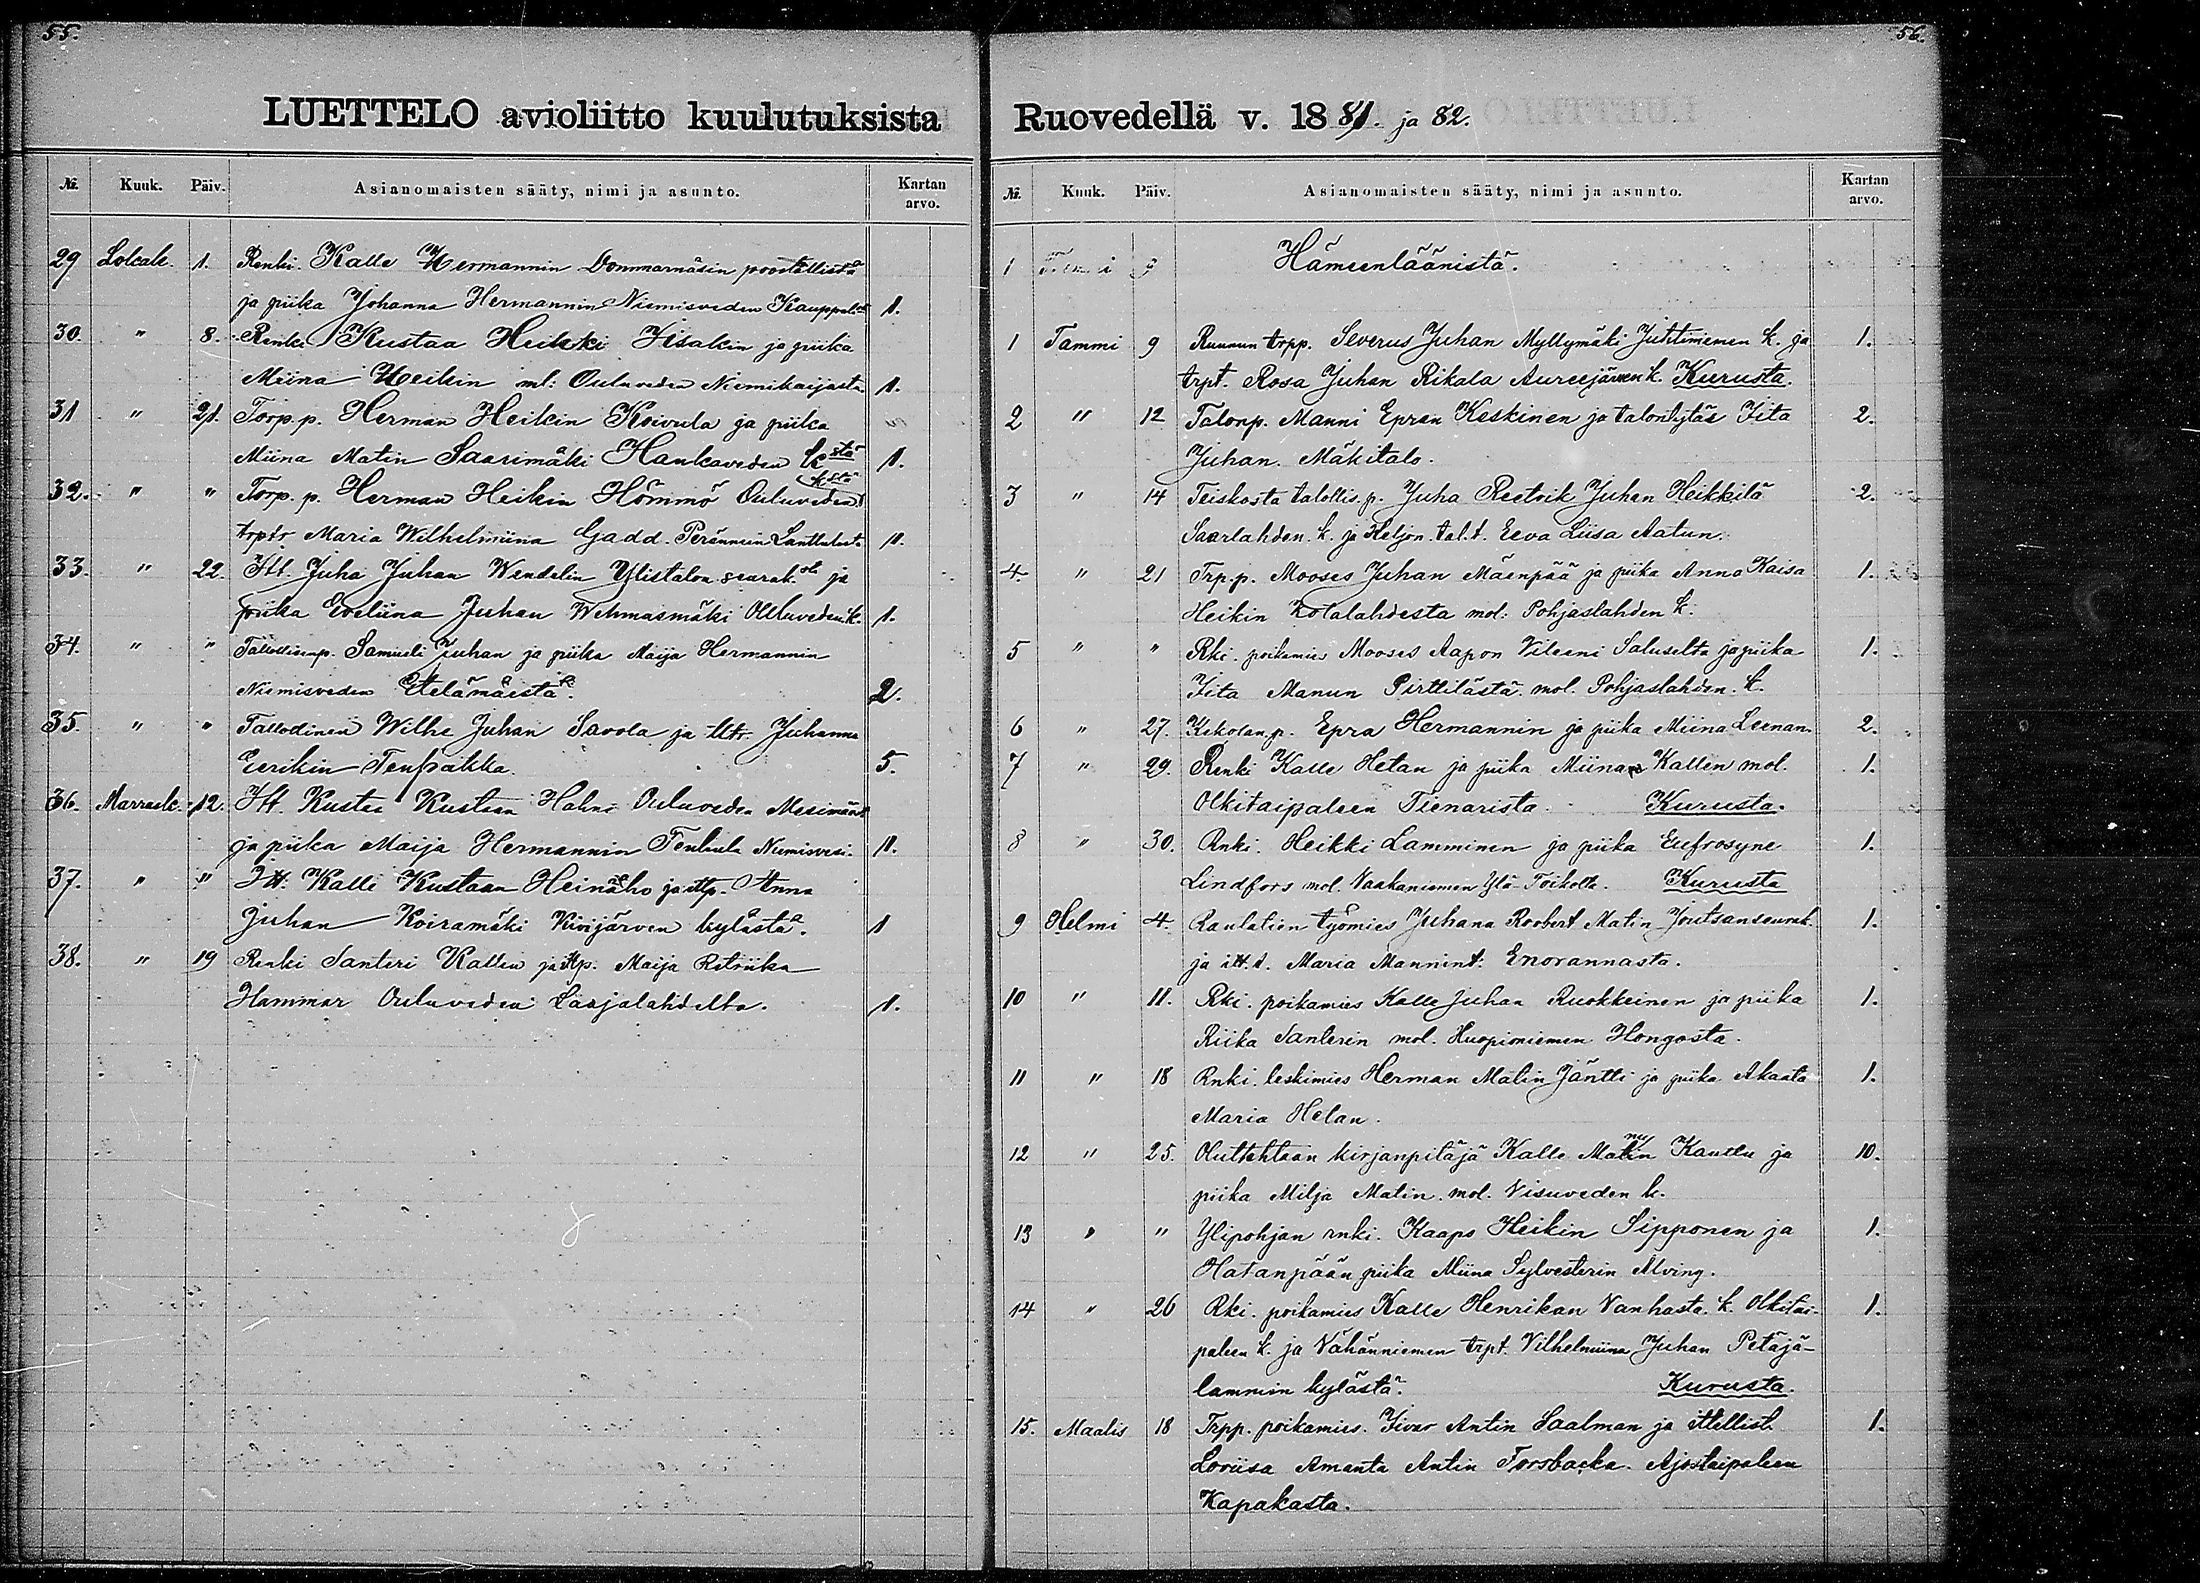 55.
LUETTELO avioliitto kuulutuksista
№. Kuuk. Päiv. Asianomaisten sääty, nimi ja asunto. Kartan arvo.
29 Lokak. 1. Renki. Kalle Hermannin
ja piika Johanna Hermannin Niemisveden 1.
30. " 8. Renki Kustaa Heikki Iisakin ja piika
Miina Heikin ml: Ouluveden Niemikaijasta 1.
31 " 21. Torp.p. Herman Heikin Koivula ja piika
Miina Matin Saarimäki Hankaveden k stä 1.
32. " " Torp. p. Herman Heikin Hömmö Ouluveden k stä
trptr Maria Wilhelmiina Gadd. Perännein 1.
33. " 22. Itt. Juha Juhan Wendelin Ylistalon seurak. st ja
piika Eveliina Juhan Wehmasmäki Ouluveden k. 1.
34. " " Talollisenp. Samueli Juhan ja piika Maija Hermannin
Niemisveden Etelämäistä. 2.
35. " " Talollinen Wilhe Juhan Savola ja ttr. Juhanna
Eerikin 5.
36. Marrask. 12. Itt. Kustaa Kustaan Ouluveden
ja piika Maija Hermannin Niemisvesi. 1.
37. " " Itt. Kalle Kustaan Heinäho ja ittp. Anna
Juhan Koiramäki Kivijärven kylästä. 1
38. " 19 Renki Santeri Kallen ja ittp. Maija Retriika
Hammar Ouluveden Laajalahdelta. 1.
56.
Ruovedellä v. 1881. ja 82.
№. Kuuk. Päiv. Asianomaisten sääty, nimi ja asunto. Kartan arvo.
1 Hämeenläänistä.
1 Tammi 9 Ruunun trpp. Severus Juhan Myllymäki Juhtimemen k. ja 1.
trpt. Rosa Juhan Rikala Aureejärven k. Kurusta.
2 " 12 Talonp. Manni Epran Keskinen ja talontytär Iita 2.
Juhan. Mäkitalo.
3 " 14 Teiskosta talollis.p. Juha Reetrik Juhan Heikkilä 2.
Saarlahden. k. ja Heljon. tal.t. Eeva Liisa Aatun.
4 " 21 Trp.p. Mooses Juhan Mäenpää ja piika Anna Kaisa 1.
Heikin Kotalahdesta mol: Pohjaslahden k.
5 " " Rki. poikamies Mooses Aapon Vileeni Saluselta ja piika 1.
Iita Manun Pirttilästä. mol. Pohjaslahden. k.
6 " 27. Kekolan.p. Epra Hermannin ja piika Miina Leenan. 2.
7 " 29. Renki Kalle Hetan ja piika Miina Kallen mol. 1.
Olkitaipaleen Tienarista. Kurusta.
8 " 30. Rnki. Heikki Lamminen ja piika Eufrosyne 1.
Lindfors mol. Vaakaniemen Ylä-Töikolta. Kurusta
9 Helmi 4. Raulatien työmies Juhana Roobert Matin Joutsan seurak. 1.
ja itt.t. Maria Mannint. Enorannasta.
10 " 11. Rki. poikamies Kalle Juhan Ruokkeinen ja piika 1.
Riika Santerin mol. Huopioniemen Hongosta.
11 " 18 Rnki. leskimies Herman Matin Jäntti ja piika Akaata 1.
Maria Helan.
12 " 25. Oluttehtaan kirjanpitäjä Kalle Kauttu ja 10.
piika Milja Matin. mol. Visuveden k.
13 " " Ylipohjan rnki. Kaapo Heikin Sipponen ja 1.
Hatanpään piika Miina Sylvesterin Alving.
14 " 26 Rki. poikamies Kalle Henrikan Vanhasta. k. Olkitai- 1.
paleen k. ja Vähänniemen trpt. Vilhelmiina Juhan Petäjä-
lammin kylästä. Kurusta.
15. Maalis 18 Trpp. poikamies. Iivar Antin Saalman ja ittellist. 1.
Loviisa Amanta Antin Forsbacka. Ajostaipaleen
Kapakasta.